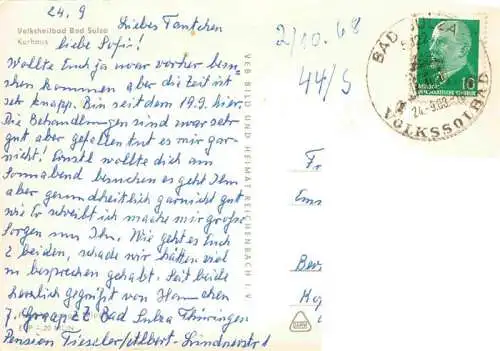 24.9
Liebes Tantchen
Volksheilbad Bad Sulza
Kurhaus
liebe Sofie!
Wollte Euch ja zwar vorher besu-
chen kommen aber die Zeit ist
sehr knapp. Bin seit dem 19.9. hier.
Die Behandlungen sind zwar sehr
gut aber gefallen tut es mir gar-
nicht! Ernstl wollte dich am
Sonnabend besuchen es geht Ihm
aber gesundheitlich garnicht gut
wie Er schreibt ich mache mir große
Sorgen um Ihn. Wie geht es Euch
2 beiden, schade wir hätten viel
zu besprechen gehabt. Seid beide
herzlich gegrüßt von Hannchen
z. Bad Sulza Thüringen
Pension Lindnerstr 1
VEB BILD UND HEIMAT REICHENBACH I. V.
2/10.68
44/S
BAD SULZA
VOLKSSOLBAD
24.-9.68
10
Fr
Ems
Bev